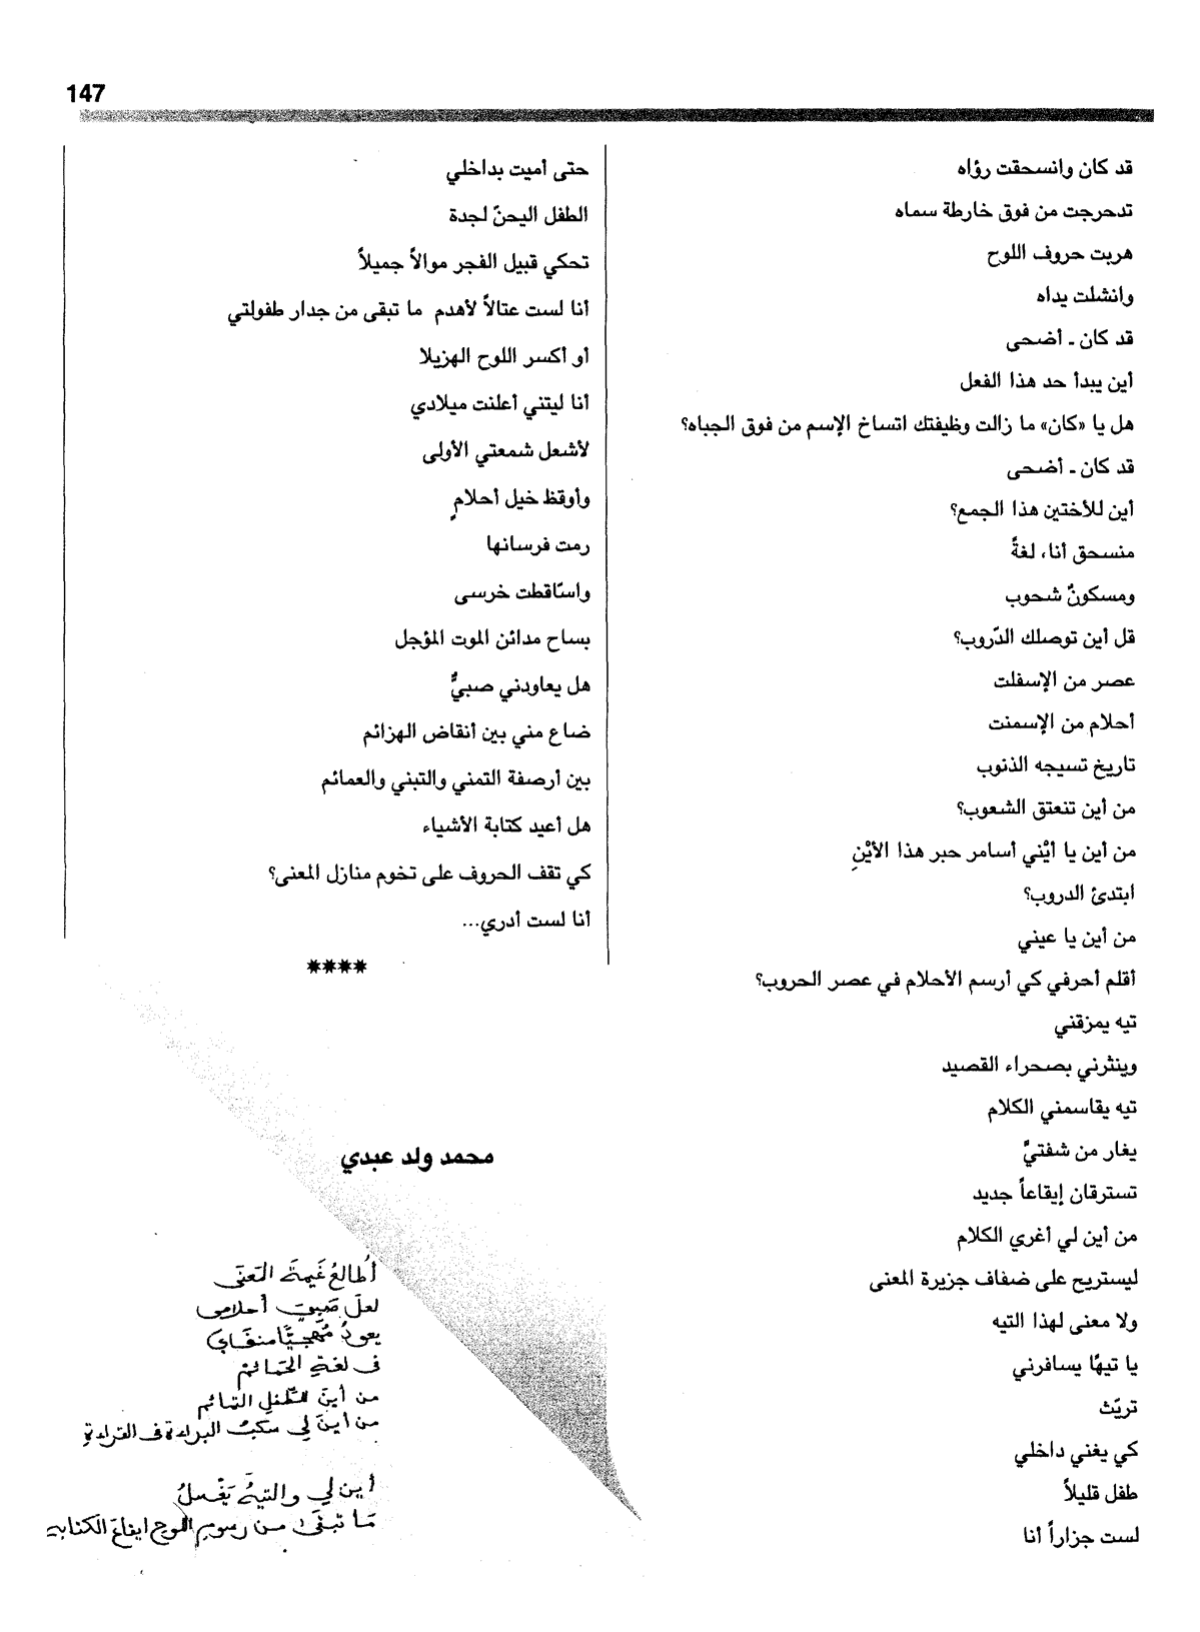 147
قد كان وانسحقت رؤاه
تدحرجت من فوق خارطة سماه
هربت حروف اللوح
وانشلت يداه
قد كان ـ أضحى
أين يبدأ حد هذا الفعل
هل يا «كان» ما زالت وظيفتك اتساخ الإسم من فوق الجباه؟
قد كان ـ أضحى
أين للأختين هذا الجمع؟
منسحق أنا، لغةً
ومسكونٌ شحوب
قل أين توصلك الدّروب؟
عصر من الإسفلت
أحلام من الإسمنت
تاريخ تسيجه الذنوب
من أين تنعتق الشعوب؟
من أين يا أيْني أسامر حبر هذا الأيْنِ
ابتدئ الدروب؟
من أين يا عيني
أقلم أحرفي كي أرسم الأحلام في عصر الحروب؟
تيه يمزقني
وينثرني بصحراء القصيد
تيه يقاسمني الكلام
يغار من شفتيَّ
تسترقان إيقاعاً جديد
من أين لي أغري الكلام
ليستريح على ضفاف جزيرة المعنى
ولا معنى لهذا التيه
يا تيهًا يسافرني
تريّث
كي يغني داخلي
طفل قليلاً
لست جزاراً أنا
حتى أميت بداخلي
الطفل اليحنّ لجدة
تحكي قبيل الفجر موالاً جميلاً
أنا لست عتالاً لأهدم ما تبقى من جدار طفولتي
أو أكسر اللوح الهزيلا
أنا ليتني أعلنت ميلادي
لأشعل شمعتي الأولى
وأوقظ خيل أحلامٍ
رمت فرسانها
واسّاقطت خرسى
بساح مدائن الموت المؤجل
هل يعاودني صبيٌّ
ضاع مني بين أنقاض الهزائم
بين أرصفة التمني والتبني والعمائم
هل أعيد كتابة الأشياء
كي تقف الحروف على تخوم منازل المعنى؟
أنا لست أدري...
****
محمد ولد عبدي
أُطالعُ غَيمةَ المَعنَى
لعلَّ صَبيَّ أحلامى
يعودُ مُهجيًّا منفَاي
فى لغةِ الحَمائمْ
من أينَ للطّفلِ التمائم
من أينَ لي سكبُ البراءة فى القراءةِ
أين لي والتيهُ يَغْسلُ
مَا تبقَى من رسومِ اللوحِ ايقاعَ الكتابه